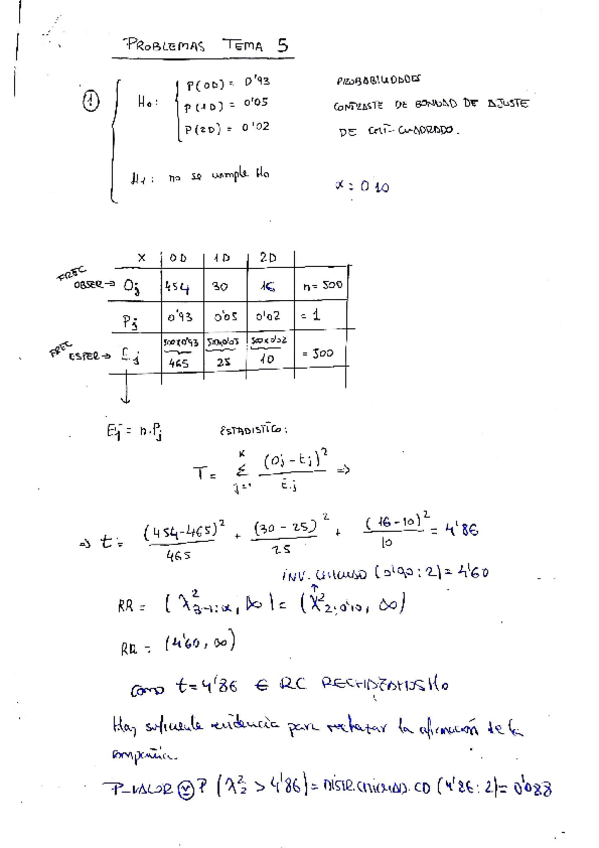 PROBLEMAS TEMA 5
① H0: P(0D) = 0'93 PROBABILIDADES
P(1D) = 0'05 CONTRASTE DE BONDAD DE AJUSTE
P(2D) = 0'02 DE CHI-CUADRADO.
H1: no se cumple H0 α: 0'10
X 0D 1D 2D
FREC OBSER → Oj 454 30 16 n = 500
Pj 0'93 0'05 0'02 = 1
FREC ESPER → Ej 500x0'93 500x0'05 500x0'02 = 500
465 25 10
Ej = n.Pj ESTADISTICO:
T = Σ (Oj - Ej)² / Ej ⇒
⇒ t = (454-465)² / 465 + (30-25)² / 25 + (16-10)² / 10 = 4'86
INV. CHICUAD (0'90; 2) = 4'60
RR = (χ²3-1;α, ∞) = (χ²2;0'10, ∞)
RR = (4'60, ∞)
como t = 4'86 ∈ RC RECHAZAMOS H0
Hay suficiente evidencia para rechazar la afirmación de la
compañia.
P-VALOR P (χ²2 > 4'86) = DISTR.CHICUAD.CD (4'86; 2) = 0'088